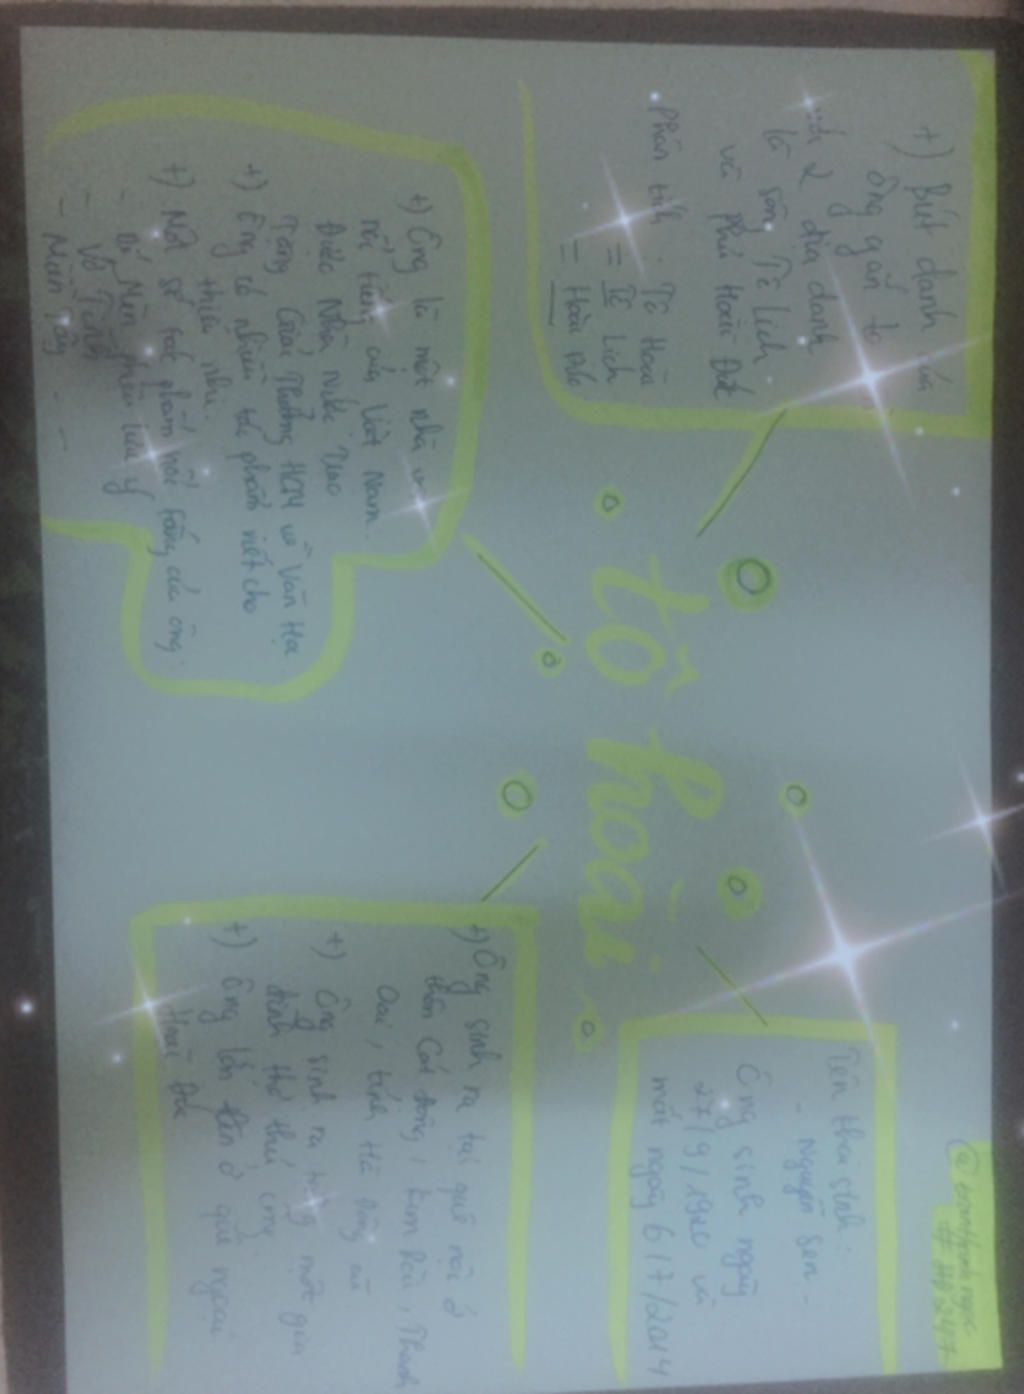 +) Bút danh của
ông gắn
2 địa danh
là sông Tô Lịch
và phủ Hoài Đức
Phân tích: Tô Hoài
= Tô Lịch
= Hoài Đức
tô hoài
@tranthanhngoc
Tên khai sinh:
- Nguyễn Sen -
Ông sinh ngày
27/9/1920 và
mất ngày 6/7/2014
+) Ông là một nhà
nổi tiếng của Việt Nam.
Được Nhà nước trao
Tặng Giải Thưởng HCM về Văn Học
+) Ông có nhiều tác phẩm viết cho
thiếu nhi.
+) Một số tác phẩm nổi tiếng của ông.
- Dế Mèn phiêu lưu ý
- Võ Tình
- Miền Tây
+) Ông sinh ra tại quê nội ở
thôn Cát Động, Kim Bài, Thanh
Oai, tỉnh Hà Đông cũ
+) Ông sinh ra trong một gia
đình thợ thủ công
+) Ông lớn lên ở quê ngoại
Hoài Đức